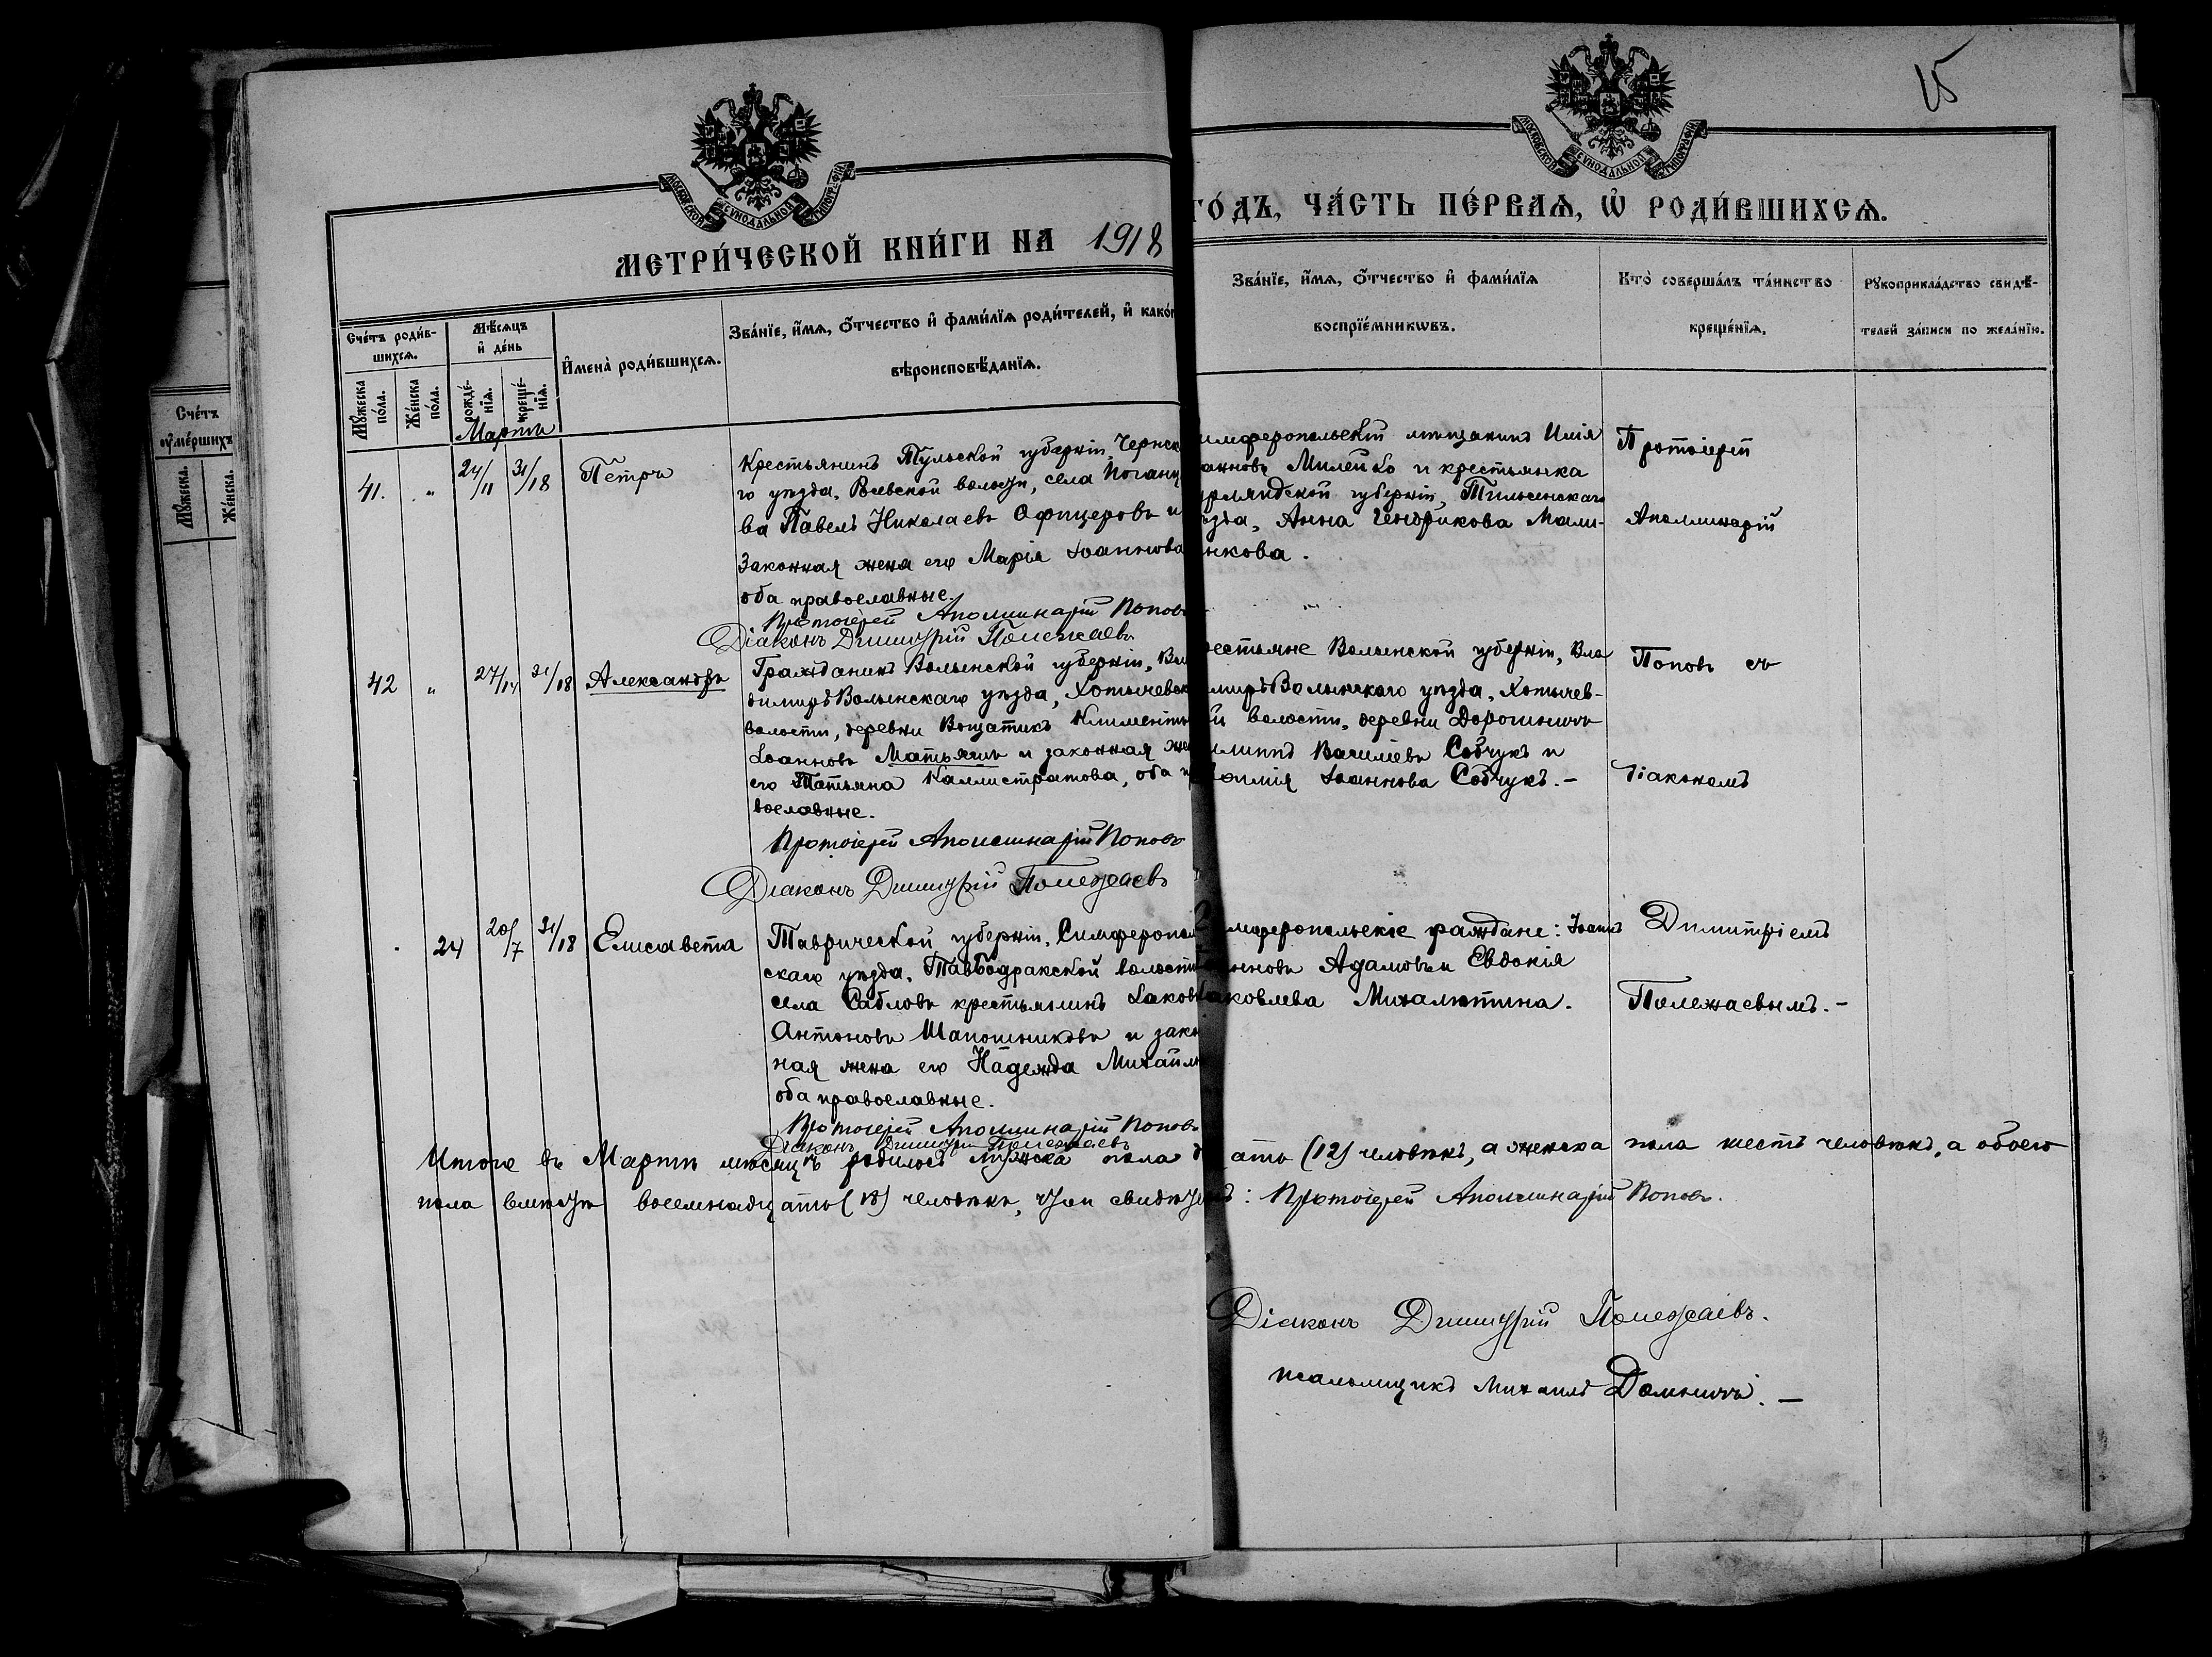 15
МОСКОВСКОЙ СѴНОДАЛЬНОЙ ТИПОГРАФІИ
МОСКОВСКОЙ СѴНОДАЛЬНОЙ ТИПОГРАФІИ
МЕТРИ́ЧЕСКОЙ КНИ́ГИ НА 1918
ГО́ДЪ, ЧА́СТЬ ПЕ́РВАѦ, Ѡ҆ РОДИ́ВШИХСѦ.
Сче́тъ роди́в-
шихсѧ.
Мꙋ́жеска
по́ла.
Же́нска
по́ла.
Мѣ́сѧцъ
и҆ де́нь
рожде́-
нїѧ.
креще́-
нїѧ.
И҆мена̀ роди́вшихсѧ.
Зва́нїе, и҆́мѧ, ѻ҆́тчество и҆ фами́лїѧ роди́телей, и҆ како́г
вѣроисповѣ́данїѧ.
Зва́нїе, и҆́мѧ, ѻ҆́тчество и҆ фами́лїѧ
воспрїе́мникѡвъ.
Кто̀ соверша́лъ та́инство
креще́нїѧ.
Рꙋкоприкла́дство свидѣ́-
телей за́писи по жела́нїю.
Сче́тъ
ᲂу҆ме́ршихъ
Мꙋ́жеска.
Же́нска.
Мартъ
41. " 24/11 31/18 Петръ
Крестьянинъ Тульской губерніи, Чернска
го уѣзда, волости, села
ва Павелъ Николаевъ Офицеровъ и
законная жена его Марія Іоаннова
оба православные.
Протоіерей Аполлинарій Поповъ
Діаконъ Димитрій Полежаевъ
имферопольскій мѣщанинъ Илія
аннов Милейко и крестьянка
урляндской губерніи, Тильсенскаго
ѣзда, Анна Гендрикова Мали-
нкова.
Протоіерей
Аполлинарій
42 " 27/14 31/18 Александръ
Гражданинъ Волынской губерніи, Вла
димиръ Волынскаго уѣзда, Хотычевск
волости, деревни Климентъ
Іоанновъ Матьяшъ и законная же
его Татьяна Каллистратова, оба пр
вославные.
Протоіерей Аполлинарій Поповъ
Діаконъ Димитрій Полежаевъ
рестьяне Волынской губерніи, Вла
имиръ Волынскаго уѣзда, Хотычев-
й волости, деревни Дорогиничи
илиппъ Василіевъ Собчукъ и
Іоаннова Собчукъ.-
Поповъ съ
діакономъ
24 20/7 31/18 Елисавета
Таврической губерніи, Симферополь
скаго уѣзда, Тавбодракской волости
села Сабловъ крестьянинъ Іаковъ
Антоновъ Шапошниковъ и закон
ная жена его Надежда Михайло
оба православные.
Протоіерей Аполлинарій Поповъ
Діаконъ Димитрій Полежаевъ
имферопольскіе граждане: Іоаннъ
анновъ Адамовъ и Евдокія
аковлева Михалютина.
Димитріемъ
Полежаевымъ.-
Итого въ Мартѣ мѣсяцѣ родилось мужска пола д ать (12) человѣкъ, а женска пола шесть человѣкъ, а обоего
пола вмѣстѣ восемнадцать (18) человѣкъ, : Протоіерей Аполлинарій Поповъ.
Діаконъ Димитрій Полежаевъ.
псаломщикъ Михаилъ Домничъ.-